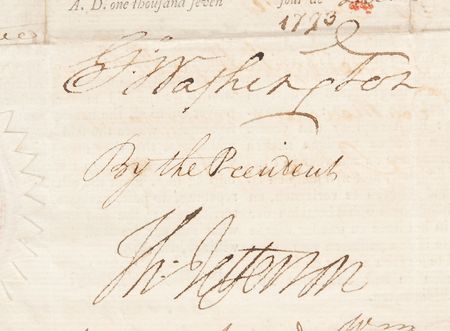 A. D. one thousand seven jour de
1793
Go. Washington
By the President
Th. Jefferson